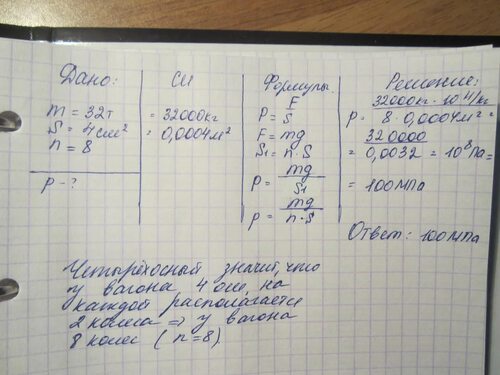 Дано:
m = 32т
S = 4см²
n = 8
p - ?
СИ
= 32000кг
= 0,0004м²
Формулы
p = F/S
F = mg
S₁ = n·S
p = mg/S₁
p = mg/n·S
Решение:
p = 32000кг·10Н/кг / 8·0,0004м² =
= 320000/0,0032 = 10⁸Па =
= 100МПа
Ответ: 100МПа
Четырёхосный значит, что
у вагона 4 оси, на
каждой располагается
2 колеса => у вагона
8 колес (n=8)